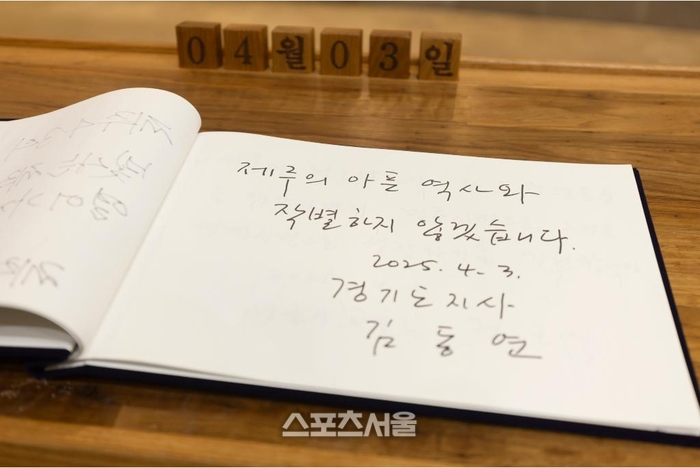 04월03일
제주의 아픈 역사와
작별하지 않겠습니다.
2025. 4. 3.
경기도지사
김동연
스포츠서울